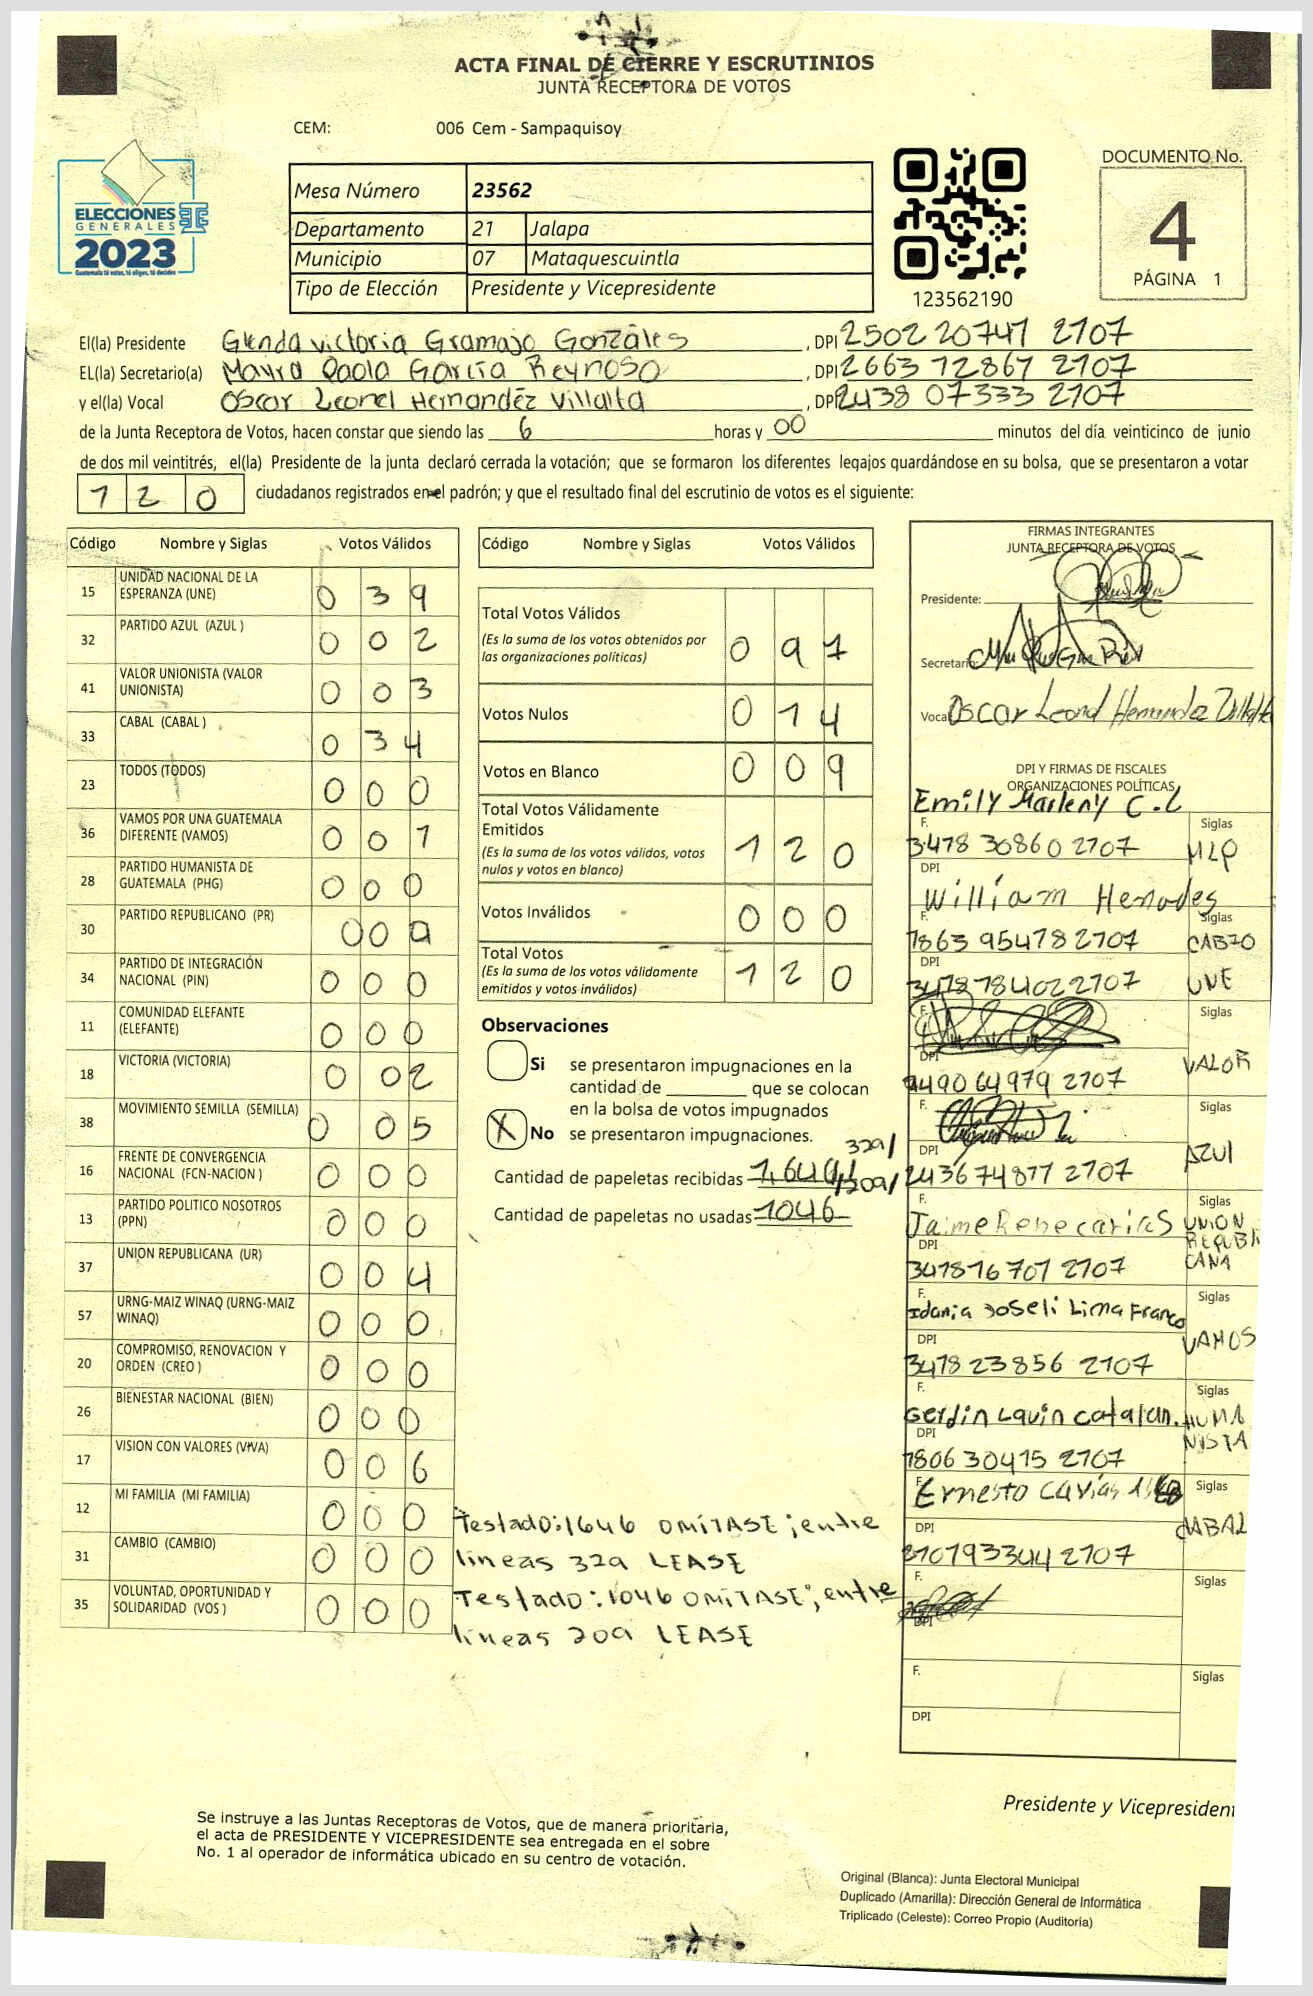 ACTA FINAL DE CIERRE Y ESCRUTINIOS
JUNTA RECEPTORA DE VOTOS
CEM: 006 Cem - Sampaquisoy
DOCUMENTO No.
4
PÁGINA 1
ELECCIONES
GENERALES
2023
Guatemala tú votas, tú eliges, tú decides
Mesa Número 23562
Departamento 21 Jalapa
Municipio 07 Mataquescuintla
Tipo de Elección Presidente y Vicepresidente
123562190
El(la) Presidente Glenda victoria Gramajo Gonzáles, DPI 2502 20747 2107
EL(la) Secretario(a) Mayra Paola García Reynoso, DPI 2663 72867 2107
y el(la) Vocal Oscar Leonel Hernandéz Villalta, DPI 2438 07333 2107
de la Junta Receptora de Votos, hacen constar que siendo las 6 horas y 00 minutos del día veinticinco de junio
de dos mil veintitrés, el(la) Presidente de la junta declaró cerrada la votación; que se formaron los diferentes legajos guardándose en su bolsa, que se presentaron a votar
120 ciudadanos registrados en el padrón; y que el resultado final del escrutinio de votos es el siguiente:
Código Nombre y Siglas Votos Válidos
15 UNIDAD NACIONAL DE LA ESPERANZA (UNE) 0 3 9
32 PARTIDO AZUL (AZUL ) 0 0 2
41 VALOR UNIONISTA (VALOR UNIONISTA) 0 0 3
33 CABAL (CABAL ) 0 3 4
23 TODOS (TODOS) 0 0 0
36 VAMOS POR UNA GUATEMALA DIFERENTE (VAMOS) 0 0 1
28 PARTIDO HUMANISTA DE GUATEMALA (PHG) 0 0 0
30 PARTIDO REPUBLICANO (PR) 0 0
34 PARTIDO DE INTEGRACIÓN NACIONAL (PIN) 0 0 0
11 COMUNIDAD ELEFANTE (ELEFANTE) 0 0 0
18 VICTORIA (VICTORIA) 0 0 2
38 MOVIMIENTO SEMILLA (SEMILLA) 0 0 5
16 FRENTE DE CONVERGENCIA NACIONAL (FCN-NACION ) 0 0 0
13 PARTIDO POLITICO NOSOTROS (PPN) 0 0 0
37 UNION REPUBLICANA (UR) 0 0 4
57 URNG-MAIZ WINAQ (URNG-MAIZ WINAQ) 0 0 0
20 COMPROMISO, RENOVACION Y ORDEN (CREO ) 0 0 0
26 BIENESTAR NACIONAL (BIEN) 0 0 0
17 VISION CON VALORES (VIVA) 0 0 6
12 MI FAMILIA (MI FAMILIA) 0 0 0
31 CAMBIO (CAMBIO) 0 0 0
35 VOLUNTAD, OPORTUNIDAD Y SOLIDARIDAD (VOS ) 0 0 0
Código Nombre y Siglas Votos Válidos
Total Votos Válidos 0 9 7
(Es la suma de los votos obtenidos por
las organizaciones políticas)
Votos Nulos 0 1 4
Votos en Blanco 0 0 9
Total Votos Válidamente
Emitidos 1 2 0
(Es la suma de los votos válidos, votos
nulos y votos en blanco)
Votos Inválidos 0 0 0
Total Votos 1 2 0
(Es la suma de los votos válidamente
emitidos y votos inválidos)
Observaciones
Si se presentaron impugnaciones en la
cantidad de ________ que se colocan
en la bolsa de votos impugnados
X No se presentaron impugnaciones.
329/
Cantidad de papeletas recibidas 209/
Cantidad de papeletas no usadas 1046
Testado: 1646 OMITASE; entre
lineas 329 LEASE
Testado: 1046 OMITASE; entre
lineas 209 LEASE
FIRMAS INTEGRANTES
JUNTA RECEPTORA DE VOTOS
Presidente:
Secretario:
Vocal Oscar Leonel Hernandez Villalta
DPI Y FIRMAS DE FISCALES
ORGANIZACIONES POLÍTICAS
Emily Marleny C.L
F. Siglas
3478 30860 2707 MLP
DPI
William Henodes
F. Siglas
1863 95478 2707 CABZO
DPI
3478 78402 2707 UNE
F. Siglas
DPI VALOR
2490 64979 2707
F. Siglas
DPI AZUl
2436 74877 2707
F. Siglas
Jaime Rene carias UNION REPUBLI CANA
DPI
347816701 2707
F. Siglas
Idania Joseli Lima Franco VAMOS
DPI
3478 23856 2107
F. Siglas
Gerdin Lauin Catalan. HUMA NISTA
DPI
1806 30415 2707
F. Siglas
Ernesto Carías
DPI CABAL
2707933442707
F. Siglas
DPI
F. Siglas
DPI
Presidente y Vicepresiden
Se instruye a las Juntas Receptoras de Votos, que de manera prioritaria,
el acta de PRESIDENTE Y VICEPRESIDENTE sea entregada en el sobre
No. 1 al operador de informática ubicado en su centro de votación.
Original (Blanca): Junta Electoral Municipal
Duplicado (Amarilla): Dirección General de Informática
Triplicado (Celeste): Correo Propio (Auditoría)